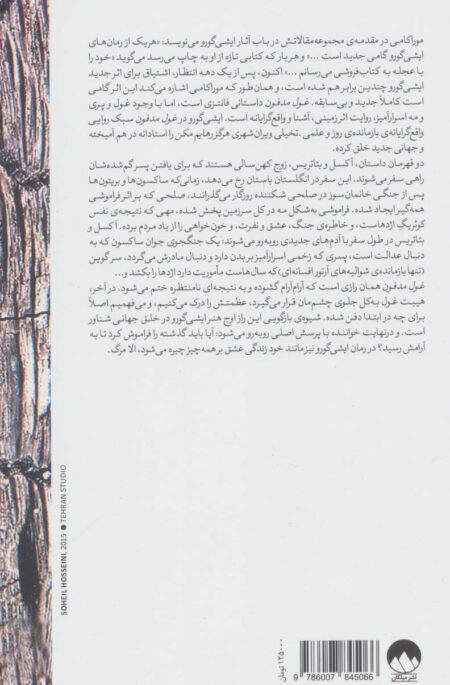 موراکامی در مقدمه‌ی مجموعه‌مقالاتش در باب آثار ایشی‌گورو می‌نویسد: «هر یک از رمان‌های
ایشی‌گورو گامی جدید است ...» و هر بار که کتابی تازه از او به چاپ می‌رسد می‌گوید «خود را
با عجله به کتاب‌فروشی می‌رسانم ...» اکنون، پس از یک دهه انتظار، اشتیاق برای اثر جدید
ایشی‌گورو چندین برابر هم شده است، و همان‌طور که موراکامی اشاره می‌کند این اثر گامی
است کاملاً جدید و بی‌سابقه. غول مدفون داستانی فانتزی است، اما با وجود غول و پری
و مه اسرارآمیز، روایت اثر زمینی، آشنا و واقع‌گرایانه است. ایشی‌گورو در غول مدفون سبک روایی
واقع‌گرایانه‌ی بازمانده‌ی روز و علمی‌ـتخیلی ویران‌شهری هرگز رهایم مکن را استادانه در هم آمیخته
و جهانی جدید خلق کرده.
دو قهرمان داستان، آکسل و بئاتریس، زوج کهن‌سالی هستند که برای یافتن پسر گم‌شده‌شان
راهی سفر می‌شوند. این سفر در انگلستان باستان رخ می‌دهد، زمانی‌که ساکسون‌ها و بریتون‌ها
پس از جنگی خانمان‌سوز در صلحی شکننده روزگار می‌گذرانند، صلحی که بر اثر فراموشی
همه‌گیر ایجاد شده. فراموشی به‌شکل مه در کل سرزمین پخش شده، مهی که نتیجه‌ی نفس
کوئریگِ اژدهاست، و خاطره‌ی جنگ، عشق و نفرت، و خون‌خواهی را از یاد مردم برده. آکسل و
بئاتریس در طول سفر با آدم‌های جدیدی روبه‌رو می‌شوند: یک جنگجوی جوان ساکسون که به
دنبال عدالت است، پسری که زخمی اسرارآمیز بر بدن دارد و دنبال مادرش می‌گردد، سر گوین
(تنها بازمانده‌ی شوالیه‌های آرتور افسانه‌ای) که سال‌هاست مأموریت دارد اژدها را بکشد و...
غول مدفون همان رازی است که آرام‌آرام گشوده و به نتیجه‌ای نامنتظره ختم می‌شود. در آخر،
هیبت غول به‌کل جلوی چشم‌مان قرار می‌گیرد، عظمتش را درک می‌کنیم، و می‌فهمیم اصلاً
برای چه در ابتدا دفن شده. شیوه‌ی بازگویی این راز اوج هنر ایشی‌گورو در خلق جهانی شناور
است، و درنهایت خواننده با پرسش اصلی روبه‌رو می‌شود: آیا باید گذشته را فراموش کرد تا به
آرامش رسید؟ در رمان ایشی‌گورو نیز مانند خود زندگی عشق بر همه‌چیز چیره می‌شود، الا مرگ.
SOHEIL HOSSEINI, 2015 ● TEHRAN STUDIO
۱۲۵۰۰۰ تومان
9 786007 845066
نشر میلکان